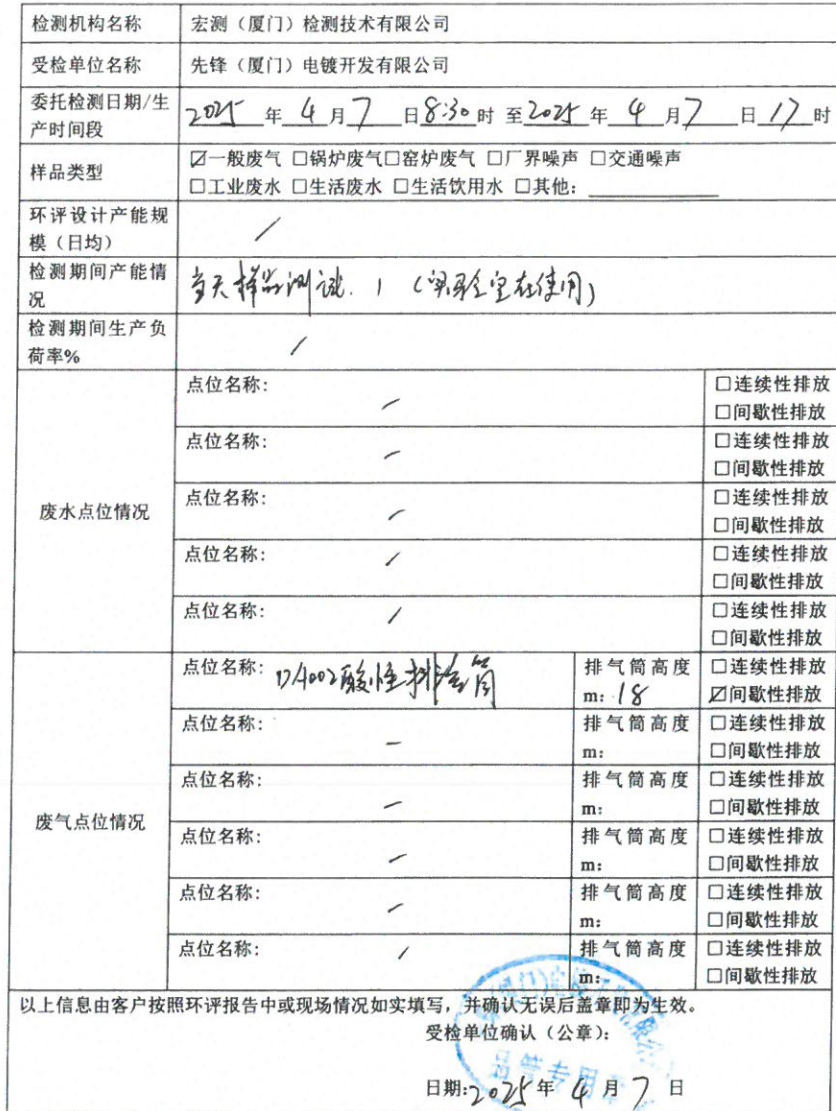 检测机构名称 宏测（厦门）检测技术有限公司
受检单位名称 先锋（厦门）电镀开发有限公司
委托检测日期/生
产时间段 2025 年 4 月 7 日 8:30 时 至 2025 年 4 月 7 日 17 时
样品类型 ☑一般废气 □锅炉废气□窑炉废气 □厂界噪声 □交通噪声
□工业废水 □生活废水 □生活饮用水 □其他：
环评设计产能规
模（日均） /
检测期间产能情
况 当天样品测试. 1 (实验室在使用)
检测期间生产负
荷率% /
废水点位情况
点位名称： / □连续性排放
□间歇性排放
点位名称： / □连续性排放
□间歇性排放
点位名称： / □连续性排放
□间歇性排放
点位名称： / □连续性排放
□间歇性排放
点位名称： / □连续性排放
□间歇性排放
废气点位情况
点位名称：DA002酸性排气筒 排气筒高度 □连续性排放
m：18 ☑间歇性排放
点位名称： / 排气筒高度 □连续性排放
m： □间歇性排放
点位名称： / 排气筒高度 □连续性排放
m： □间歇性排放
点位名称： / 排气筒高度 □连续性排放
m： □间歇性排放
点位名称： / 排气筒高度 □连续性排放
m： □间歇性排放
点位名称： / 排气筒高度 □连续性排放
m： □间歇性排放
以上信息由客户按照环评报告中或现场情况如实填写，并确认无误后盖章即为生效。
受检单位确认（公章）：
日期：2025 年 4 月 7 日